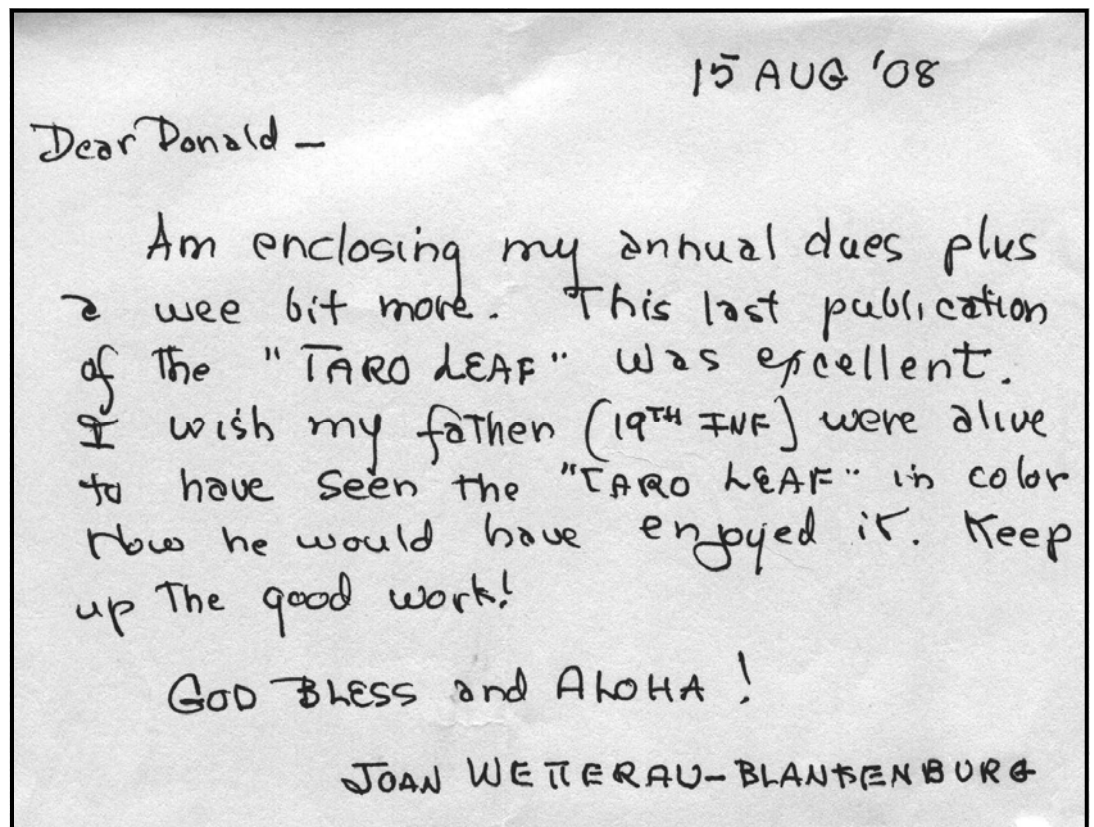 15 AUG '08
Dear Donald –
Am enclosing my annual dues plus
a wee bit more. This last publication
of the "TARO LEAF" was excellent.
I wish my father (19TH INF) were alive
to have seen the "TARO LEAF" in color
How he would have enjoyed it. Keep
up the good work!
GOD BLESS and ALOHA!
JOAN WETTERAU-BLANKENBURG